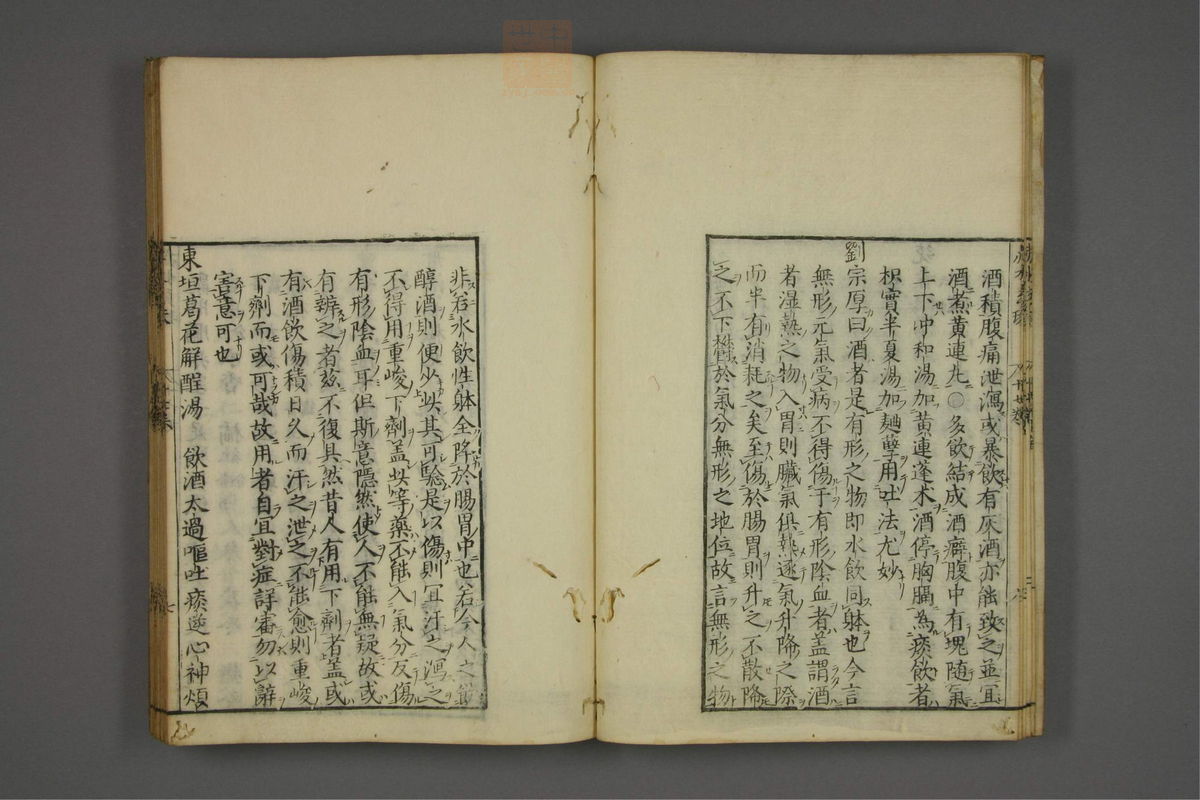 酒積腹痛泄瀉或暴飲有灰酒亦能致之並宜
酒煮黄連丸〇多飲結成酒癖腹中有塊随氣
上下冲和湯加黄連蓬术酒停胸膈為痰飲者
枳實半夏湯加麯蘖用吐法尤妙
劉宗厚曰酒者是有形之物即水飲同躰也今言
無形元氣受病不得傷于有形陰血者盖謂酒
者湿熱之物入胃則臓氣俱熱逐氣升降之際
而半有消耗之矣至傷於腸胃則升之不散降
之不下欝於氣分無形之地位故言無形之物
非若水飲性躰全降於腸胃中也若今人之飲
醇酒則便少此其可驗是以傷則宜汗之瀉之
不得用重峻下劑盖此等藥不能入氣分反傷
有形陰血耳但斯意隠然使人不能無疑故或
有辨之者兹不復具然昔人有用下劑者盖或
有酒飲傷積日久而汗之泄之不能愈則重峻
下劑而或可哉故用者自宜對症詳審勿以辭
害意可也
東垣葛花解酲湯 飲酒太過嘔吐痰逆心神煩